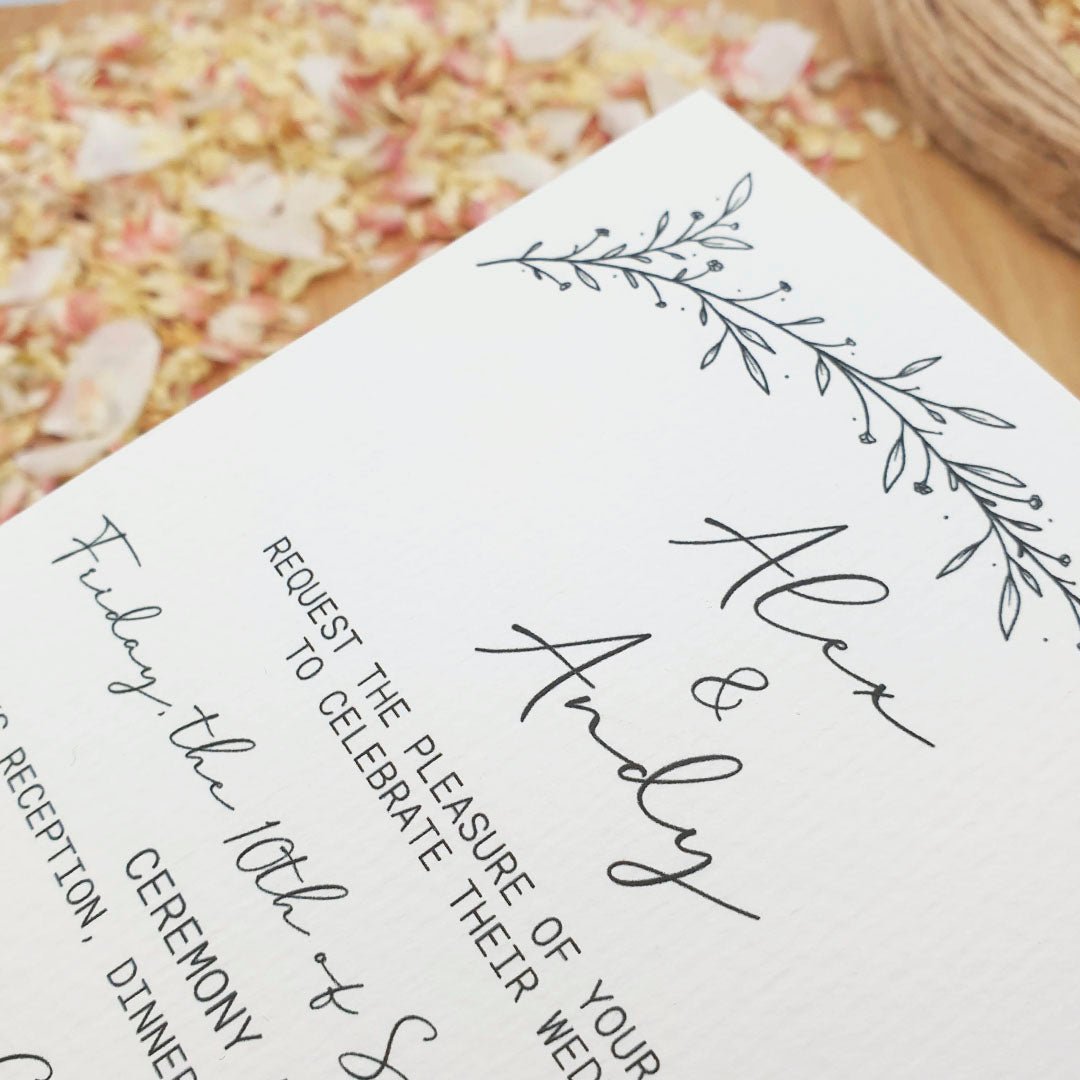 Alex
&
Andy
REQUEST THE PLEASURE OF YOUR
TO CELEBRATE THEIR WED
Friday, the 10th of S
CEREMONY
RECEPTION, DINNER